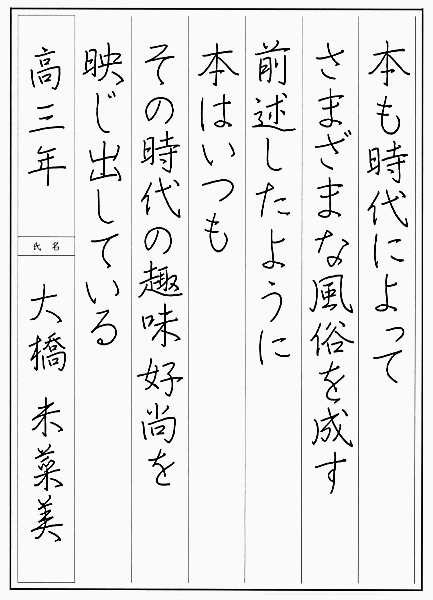 本も時代によって
さまざまな風俗を成す
前述したように
本はいつも
その時代の趣味好尚を
映じ出している
高三年
氏名
大橋未菜美